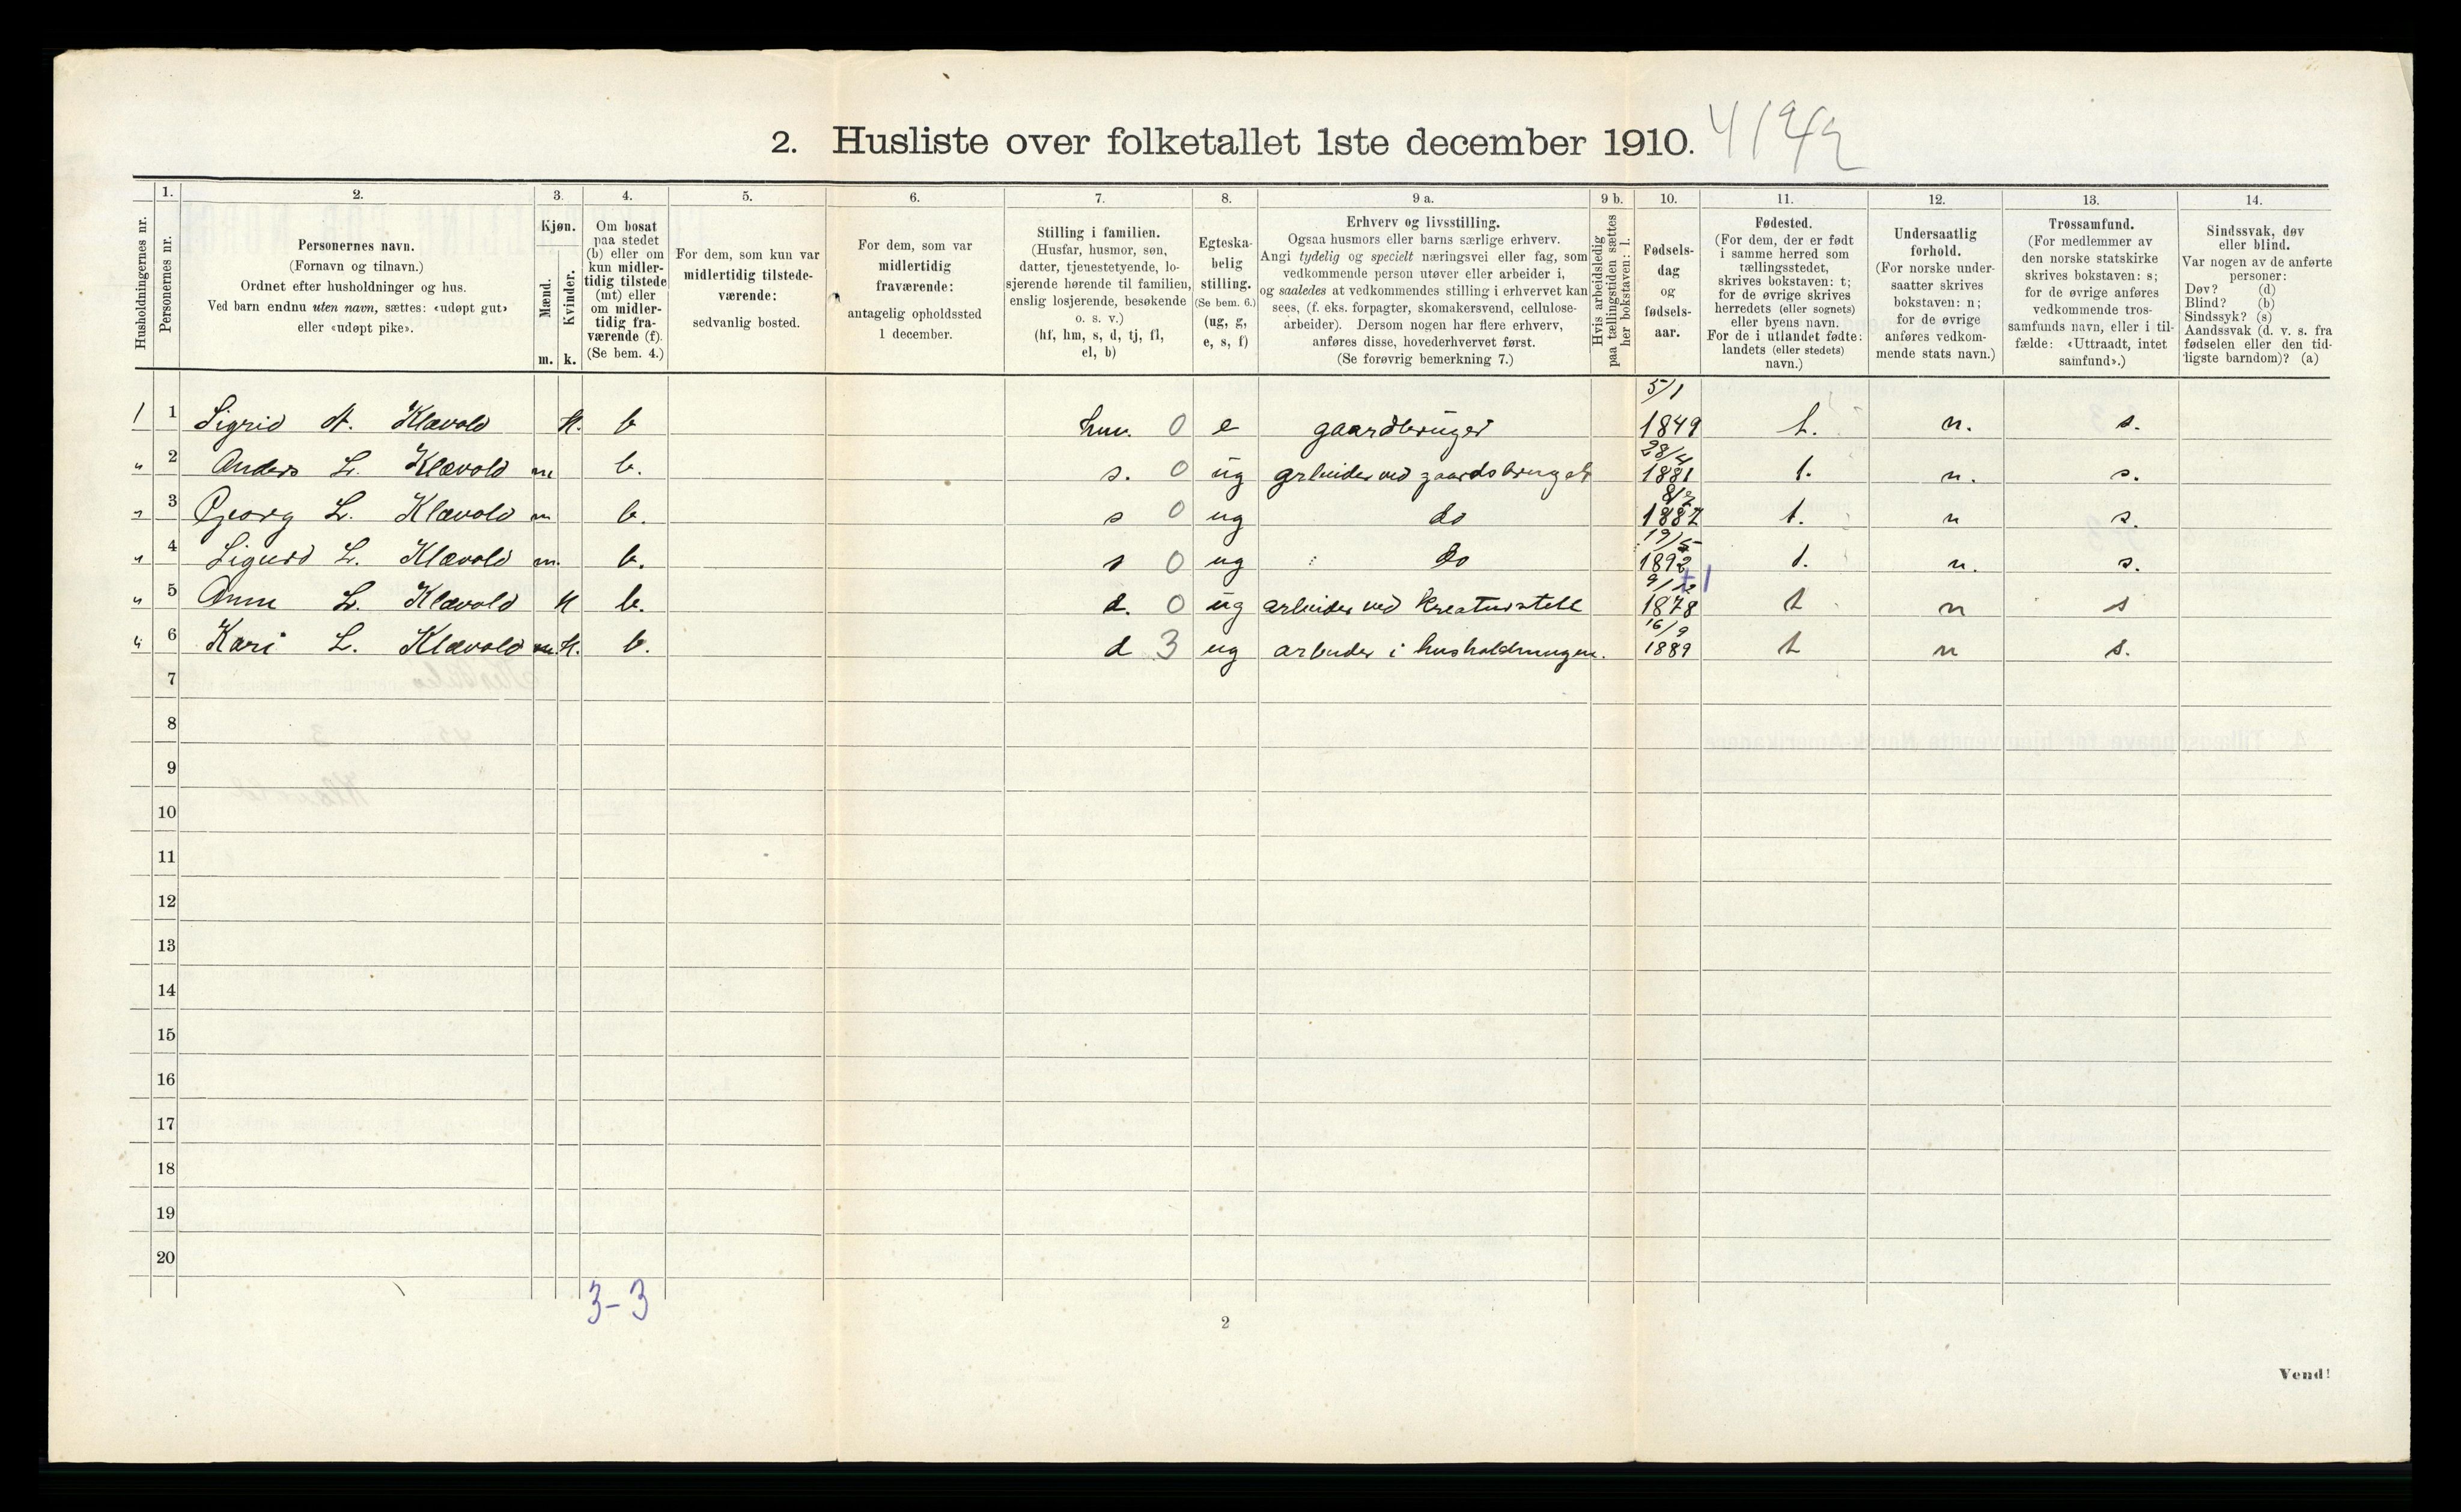 2. Husliste over folketallet 1ste december 1910.
1. 2. 3. 4. 5. 6. 7. 8. 9 a. 9 b. 10. 11. 12. 13. 14.
Husholdningernes nr.
Personernes nr.
Personernes navn.
(Fornavn og tilnavn.)
Ordnet efter husholdninger og hus.
Ved barn endnu uten navn, sættes: «udøpt gut»
eller «udøpt pike».
Kjøn.
Mænd.
Kvinder.
m. k.
Om bosat
paa stedet
(b) eller om
kun midler-
tidig tilstede
(mt) eller
om midler-
tidig fra-
værende (f).
(Se bem. 4.)
For dem, som kun var
midlertidig tilstede-
værende:
sedvanlig bosted.
For dem, som var
midlertidig
fraværende:
antagelig opholdssted
1 december.
Stilling i familien.
(Husfar, husmor, søn,
datter, tjenestetyende, lo-
sjerende hørende til familien,
enslig losjerende, besøkende
o. s. v.)
(hf, hm, s, d, tj, fl,
el, b)
Egteska-
belig
stilling.
(Se bem. 6.)
(ug, g,
e, s, f)
Erhverv og livsstilling.
Ogsaa husmors eller barns særlige erhverv.
Angi tydelig og specielt næringsvei eller fag, som
vedkommende person utøver eller arbeider i,
og saaledes at vedkommendes stilling i erhvervet kan
sees, (f. eks. forpagter, skomakersvend, cellulose-
arbeider). Dersom nogen har flere erhverv,
anføres disse, hovederhvervet først.
(Se forøvrig bemerkning 7.)
Hvis arbeidsledig
paa tællingstiden sættes
her bokstaven: l.
Fødsels-
dag
og
fødsels-
aar.
Fødested.
(For dem, der er født
i samme herred som
tællingsstedet,
skrives bokstaven: t;
for de øvrige skrives
herredets (eller sognets)
eller byens navn.
For de i utlandet fødte:
landets (eller stedets)
navn.)
Undersaatlig
forhold.
(For norske under-
saatter skrives
bokstaven: n;
for de øvrige
anføres vedkom-
mende stats navn.)
Trossamfund.
(For medlemmer av
den norske statskirke
skrives bokstaven: s;
for de øvrige anføres
vedkommende tros-
samfunds navn, eller i til-
fælde: «Uttraadt, intet
samfund».)
Sindssvak, døv
eller blind.
Var nogen av de anførte
personer:
Døv? (d)
Blind? (b)
Sindssyk? (s)
Aandssvak (d. v. s. fra
fødselen eller den tid-
ligste barndom)? (a)
1 1 Sigrid A. Klævold K. b hm. 0 e gaardbruger 5/1 1849 t. n. s.
" 2 Anders L. Klævold m b. s. 0 ug arbeider ved gaardsbruget 28/4 1881 t. n. s.
" 3 Georg L. Klævold m b. s 0 ug do 1887 t. n s.
" 4 Sigurd L. Klævold m. b. s 0 ug do 19/5 1892 t. n. s.
" 5 Anne L. Klævold K b. d. 0 ug arbeider ved Kreaturstell 9/12 1878 t n s
" 6 Kari L. Klævold K. b. d 3 ug arbeider i husholdningen. 16/9 1889 t n s.
7
8
9
10
11
12
13
14
15
16
17
18
19
20
3-3
2
Vend!